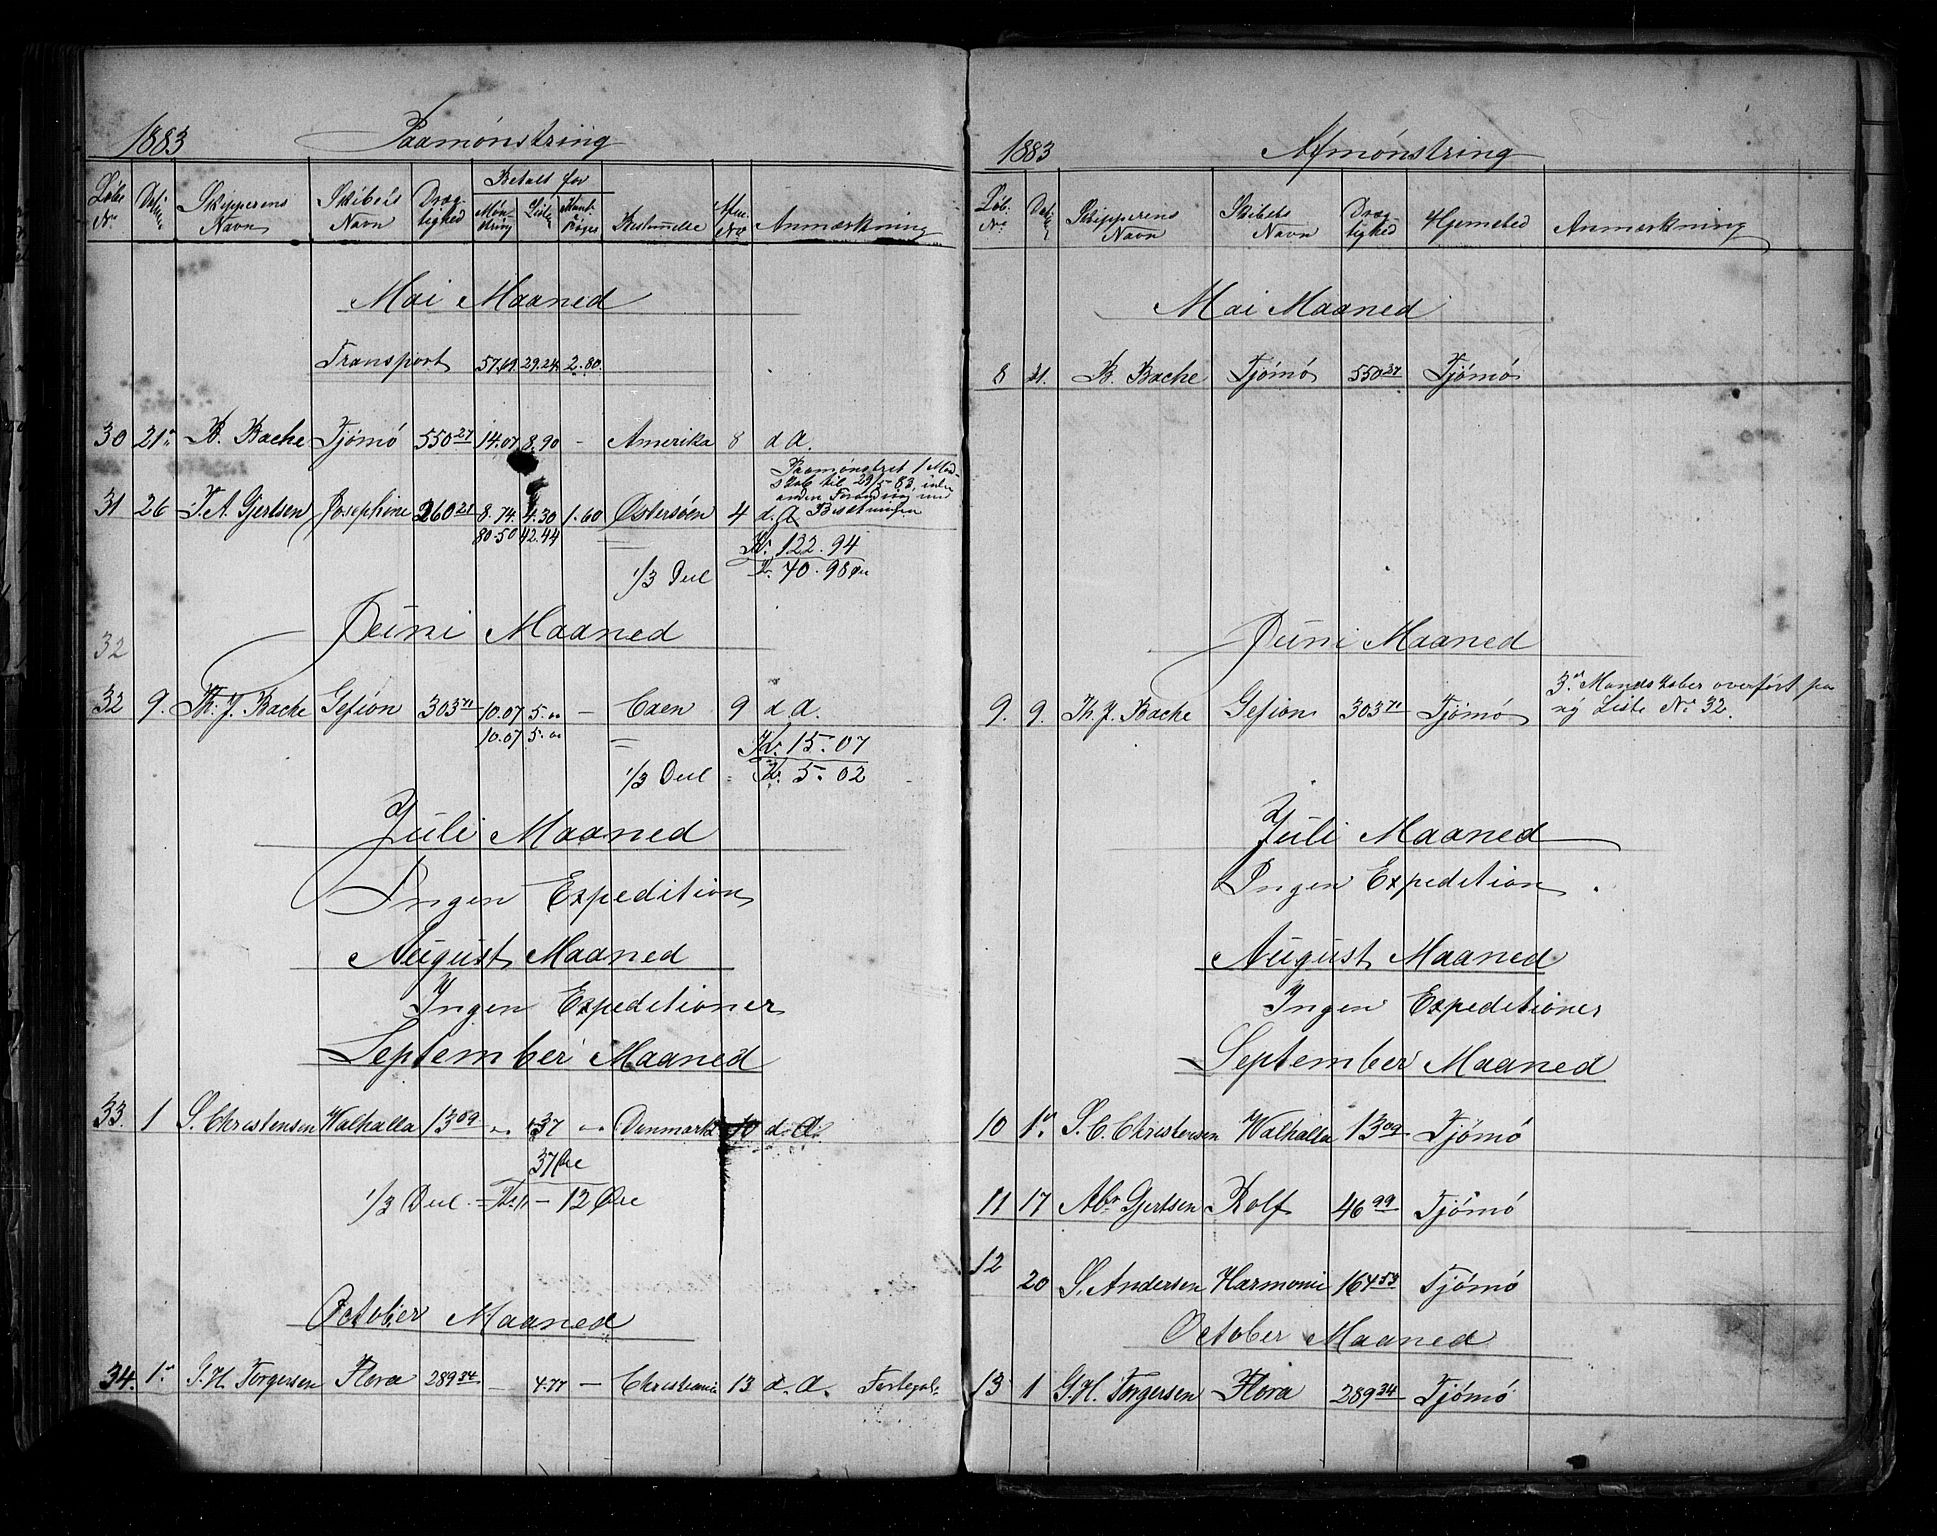 1883 Paamønstring
Løbe No. Datum Skipperens Navn Skibets Navn Dræg-tighed Betalt for Møn-string Liste Bestemmelse Anmærkning
Mai Maaned
Transport 57.69 29.24 2.80
30 21de B. Bache Tjømø 550 27 14.07 8.90 - Amerika 8 d A.
Paamønstret 1 Mand-
skab til 29/5 83, uden
anden Forandring med
31 26 Josephine 260 21 8.74. 4.30 1.60 Østersøen 4 d. A Besætningen
80.50 42.44 = Kr. 122.94
1/3 Deel Kr. 40.98 Øre
32 Juni Maaned
32 9. Th. J. Bache Gefion 303 71 10.07 5.00 - Caen 9 d A.
10.07 5.00 = Kr. 15.07
1/3 Deel Kr. 5.02
Juli Maaned
Ingen Expedition
August Maaned
Ingen Expeditioner
September Maaned
33. 1 S. Christensen Walhalla 13 09 " 37 " Danmark 10 d. A.
37 Øre
1/3 Deel = Kr. " - 12 Øre
October Maaned
34. 1. G. H. Torgersen Flora 289 34 - 4.77 - Christiania 13 d. A.
1883 Afmønstring
Løb. No. Dat. Skipperens Navn Skibets Navn Dræg-tighed Hjemsted Anmærkning
Mai Maaned
8 21. B. Bache Tjømø 550 27 Tjømø
Juni Maaned
3de Mandskaber overført paa
9. 9. Th. J. Bache Gefion 303 71 Tjømø ny Liste No. 32.
Juli Maaned
Ingen Expedition.
August Maaned
Ingen Expeditioner
September Maaned
10 1. S. C. Christensen Walhalla 13 09 Tjømø
11 17 Abr Gjertsen Rolf 46 99 Tjømø
12 20 S. Andersen Harmonie 164 53 Tjømø
October Maaned
13 1 G. H. Torgersen Flora 289 34 Tjømø